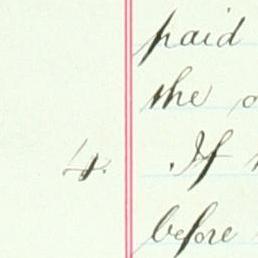 paid
the
4. If
before